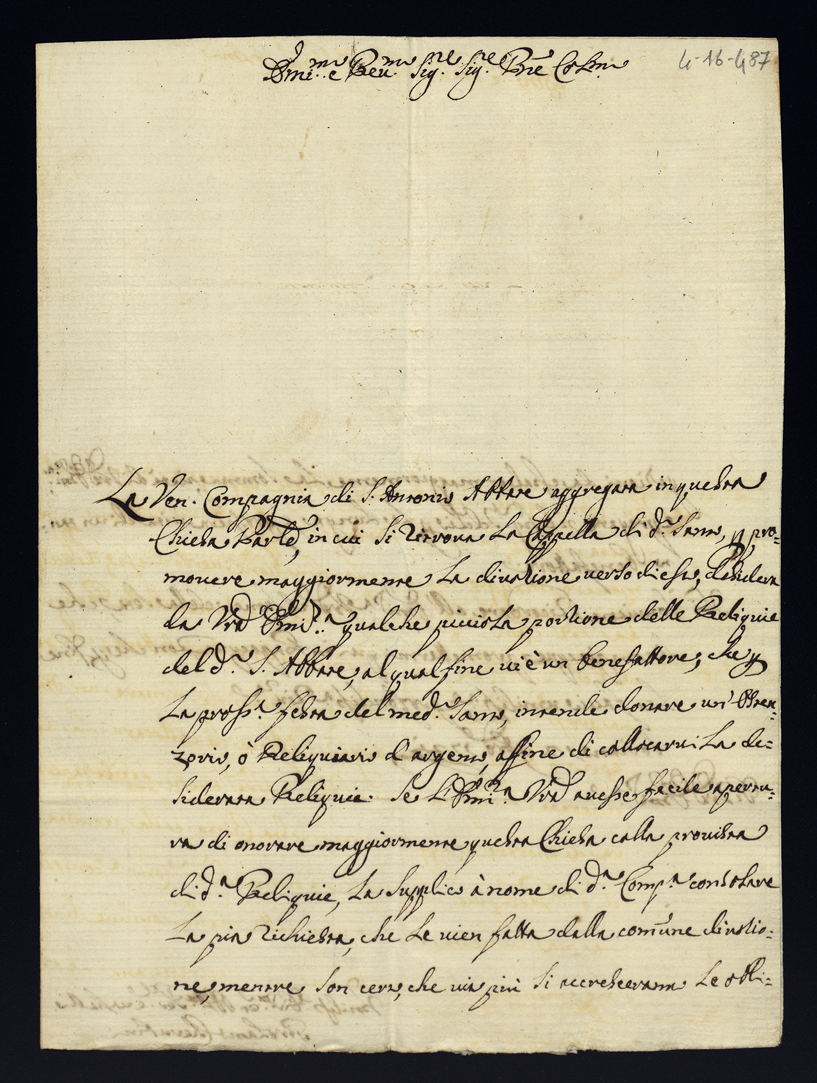 4-16-487
Ill.mo e Rev.mo Sig.re Sig.re P'ne Col.mo
La Ven. Compagnia di S. Antonio Abbate aggregata in questa
Chiesa Par.le, in cui si ritrova La Cappella di d.o Santo, p pro=
movere maggiormente La divozione verso di esso, desidera
da VrA Ill.ma qualche picciola porzione delle Reliquie
del d.o S. Abbate, al qual fine vi è un benefattore, che p
La pross.a festa del med.o Santo, intende donare un' Osten=
zorio, ò Reliquiario d'argento, affine di collocarvi La de=
siderata Reliquia. Se L'Ill.ma VrA avesse facile apertu=
ra di onorare maggiormente questa Chiesa colla provista
di d.a Reliquie, La supplico à nome di d.a Comp.a consolare
La pia richiesta, che Le vien fatta dalla comune divozio=
ne, mentre son certo, che via più si accresceranno Le obli=